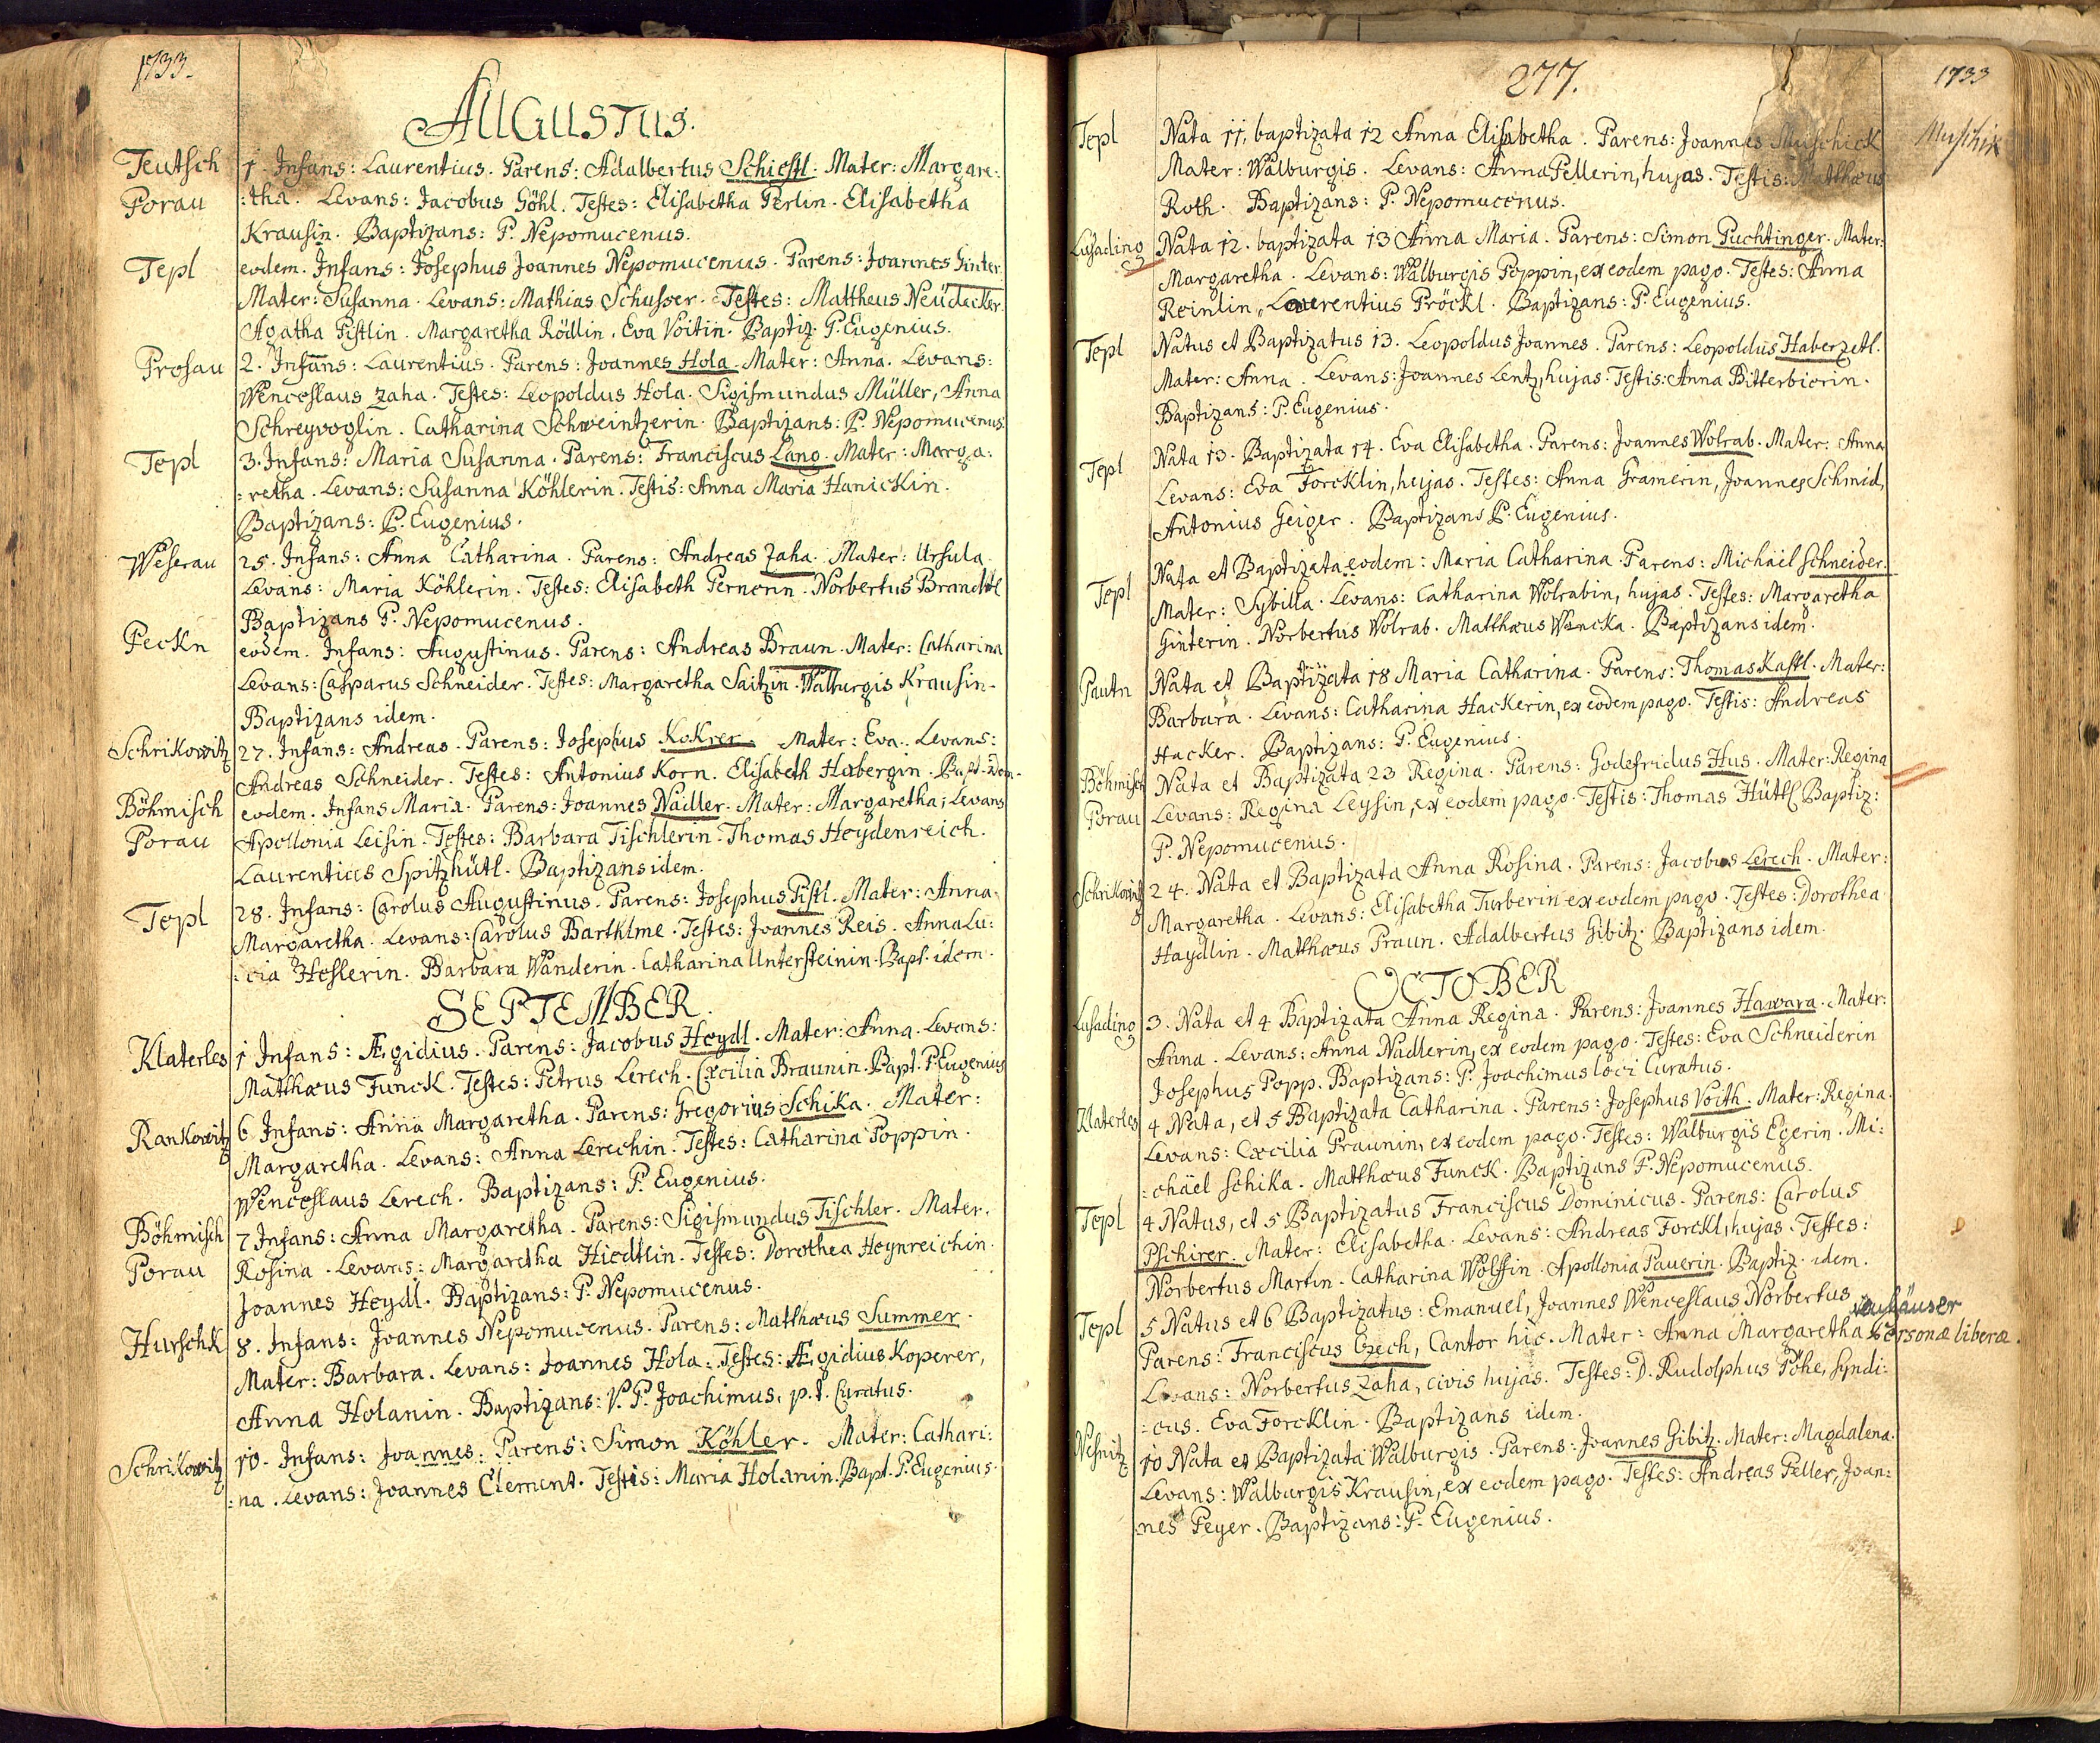 1733.
AUGUSTUS.
Teutsch Porau
1. Infans: Laurentius. Parens: Adalbertus Schiestl. Mater: Margare:
:tha. Levans: Jacobus Göhl. Testes: Elisabetha Perlin. Elisabetha
Krausin. Baptizans: P. Nepomucenus.
Tepl
eodem. Infans: Josephus Joannes Nepomucenus. Parens: Joannes Ginter.
Mater: Susanna. Levans: Mathias Schusser. Testes: Mattheus Neüdecker.
Agatha Pistlin. Margaretha Rödlin. Eva Voitin. Baptiz. P. Eugenius.
Prosau
2. Infans: Laurentius. Parens: Joannes Hola. Mater: Anna. Levans:
Wenceslaus Zaha. Testes: Leopoldus Hola. Sigismundus Müller, Anna
Schreyvoglin. Catharina Schweintzerin. Baptizans: P. Nepomucenus.
Tepl
3. Infans: Maria Susanna. Parens: Franciscus Lang. Mater: Marga:
:retha. Levans: Susanna Köhlerin. Testis: Anna Maria Hanickin.
Baptizans: P. Eugenius.
Weserau
25. Infans: Anna Catharina. Parens: Andreas Zaha. Mater: Ursula
Levans: Maria Köhlerin. Testes: Elisabeth Pernerin. Norbertus Brandtl
Baptizans P. Nepomucenus.
Peckn
eodem. Infans: Augustinus. Parens: Andreas Braun. Mater: Catharina
Levans: Casparus Schneider. Testes: Margaretha Saitzin. Walburgis Krausin.
Baptizans idem.
Schrikowitz
27. Infans: Andreas. Parens: Josephus KoKrer. Mater: Eva. Levans:
Andreas Schneider. Testes: Antonius Korn. Elisabeth Habergin. Bapt. idem.
Böhmisch Porau
eodem. Infans Maria. Parens: Joannes Nadler. Mater: Margaretha; Levans
Apollonia Leisin. Testes: Barbara Tischlerin. Thomas Heydenreich.
Laurentius Spitzhütl. Baptizans idem.
Tepl
28. Infans: Carolus Augustinus. Parens: Josephus Pistl. Mater: Anna
Margaretha. Levans: Carolus Barthlme. Testes: Joannes Reis. Anna Lu:
:cia Heslerin. Barbara Wanderin. Catharina Untersteinin. Bapt. idem.
SEPTEMBER.
Klaterles
1 Infans: Ægidius. Parens: Jacobus Heydl. Mater: Anna. Levans:
Matthæus Funck. Testes: Petrus Lerech. Cæcilia Braunin. Bapt. P. Eugenius
Rankowitz
6 Infans: Anna Margaretha. Parens: Gregorius Schika. Mater:
Margaretha. Levans: Anna Lerechin. Testes: Catharina Poppin.
Wenceslaus Lerech. Baptizans: P. Eugenius.
Böhmisch Porau
7 Infans: Anna Margaretha. Parens: Sigismundus Tischler. Mater.
Rosina. Levans: Margaretha Hiedtlin. Testes: Dorothea Heynreichin.
Joannes Heydl. Baptizans: P. Nepomucenus.
Hurschk
8. Infans: Joannes Nepomucenus. Parens: Matthæus Summer.
Mater: Barbara. Levans: Joannes Hola. Testes: Ægidius Koperer,
Anna Holanin. Baptizans: V. P. Joachimus, p. t. Curatus.
Schrikowitz
10. Infans: Joannes. Parens: Simon Köhler. Mater: Cathari:
:na. Levans: Joannes Clement. Testis: Maria Holanin. Bapt. P. Eugenius.
277.
1733
Tepl
Nata 11, baptizata 12 Anna Elisabetha. Parens: Joannes Muschick
Muschik
Mater: Walburgis. Levans: Anna Pellerin, hujas. Testis: Matthæus
Roth. Baptizans: P. Nepomucenus.
Lusading
Nata 12. baptizata 13 Anna Maria. Parens: Simon Puchtinger. Mater:
Margaretha. Levans: Walburgis Poppin, ex eodem pago. Testes: Anna
Reinlin, Laurentius Pröckl. Baptizans: P. Eugenius.
Tepl
Natus et Baptizatus 13. Leopoldus Joannes. Parens: Leopoldus Haberzetl.
Mater: Anna. Levans: Joannes Lentz, hujas. Testis: Anna Bitterbierin.
Baptizans: P. Eugenius.
Tepl
Nata 13. Baptizata 14. Eva Elisabetha. Parens: Joannes Wolrab. Mater: Anna
Levans: Eva Forcklin, hujas. Testes: Anna Gramerin, Joannes Schmid,
Antonius Geiger. Baptizans P. Eugenius.
Tepl
Nata et Baptizata eodem: Maria Catharina. Parens: Michäel Schneider.
Mater: Sybilla. Levans: Catharina Wolrabin, hujas. Testes: Margaretha
Ginterin. Norbertus Wolrab. Matthæus Wancka. Baptizans idem.
Pautn
Nata et Baptizata 18 Maria Catharina. Parens: Thomas Kastl. Mater:
Barbara. Levans: Catharina Hackerin, ex eodem pago. Testis: Andreas
Hacker. Baptizans: P. Eugenius.
Böhmisch Porau
Nata et Baptizata 23 Regina. Parens: Godefridus Hus. Mater: Regina
Levans: Regina Leysin, ex eodem pago. Testis: Thomas Hütl. Baptiz:
P. Nepomucenus.
Schrikowitz
24. Nata et Baptizata Anna Rosina. Parens: Jacobus Lerech. Mater:
Margaretha. Levans: Elisabetha Turberin ex eodem pago. Testes: Dorothea
Haydlin. Matthæus Praun. Adalbertus Gibitz. Baptizans idem.
OCTOBER
Lusading
3. Nata et 4 Baptizata Anna Regina. Parens: Joannes Hawara. Mater:
Anna. Levans: Anna Nadlerin, ex eodem pago. Testes: Eva Schneiderin
Josephus Popp. Baptizans: P. Joachimus loci Curatus.
Klaterles
4 Nata, et 5 Baptizata Catharina. Parens: Josephus Voith. Mater: Regina.
Levans: Cæcilia Praunin, ex eodem pago. Testes: Walburgis Egerin. Mi:
:chäel Schika. Matthæus Funck. Baptizans P. Nepomucenus.
Tepl
4 Natus, et 5 Baptizatus Franciscus Dominicus. Parens: Carolus
Pschirer. Mater: Elisabetha. Levans: Andreas Forckl, hujas. Testes:
Norbertus Martin. Catharina Wolffin. Apollonia Pauerin. Baptiz. idem.
Tepl
5 Natus et 6 Baptizatus: Emanuel, Joannes Wenceslaus Norbertus
Neuhäuser
Parens: Franciscus Czech, Cantor hic. Mater: Anna Margaretha personæ liberæ.
Levans: Norbertus Zaha, civis hujas. Testes: D. Rudolphus Pöhe, Syndi:
:cus. Eva Forcklin. Baptizans idem.
Nesnitz
10 Nata et Baptizata Walburgis. Parens: Joannes Gibitz. Mater: Magdalena.
Levans: Walburgis Krausin, ex eodem pago. Testes: Andreas Peller, Joan:
:nes Peyer. Baptizans: P. Eugenius.